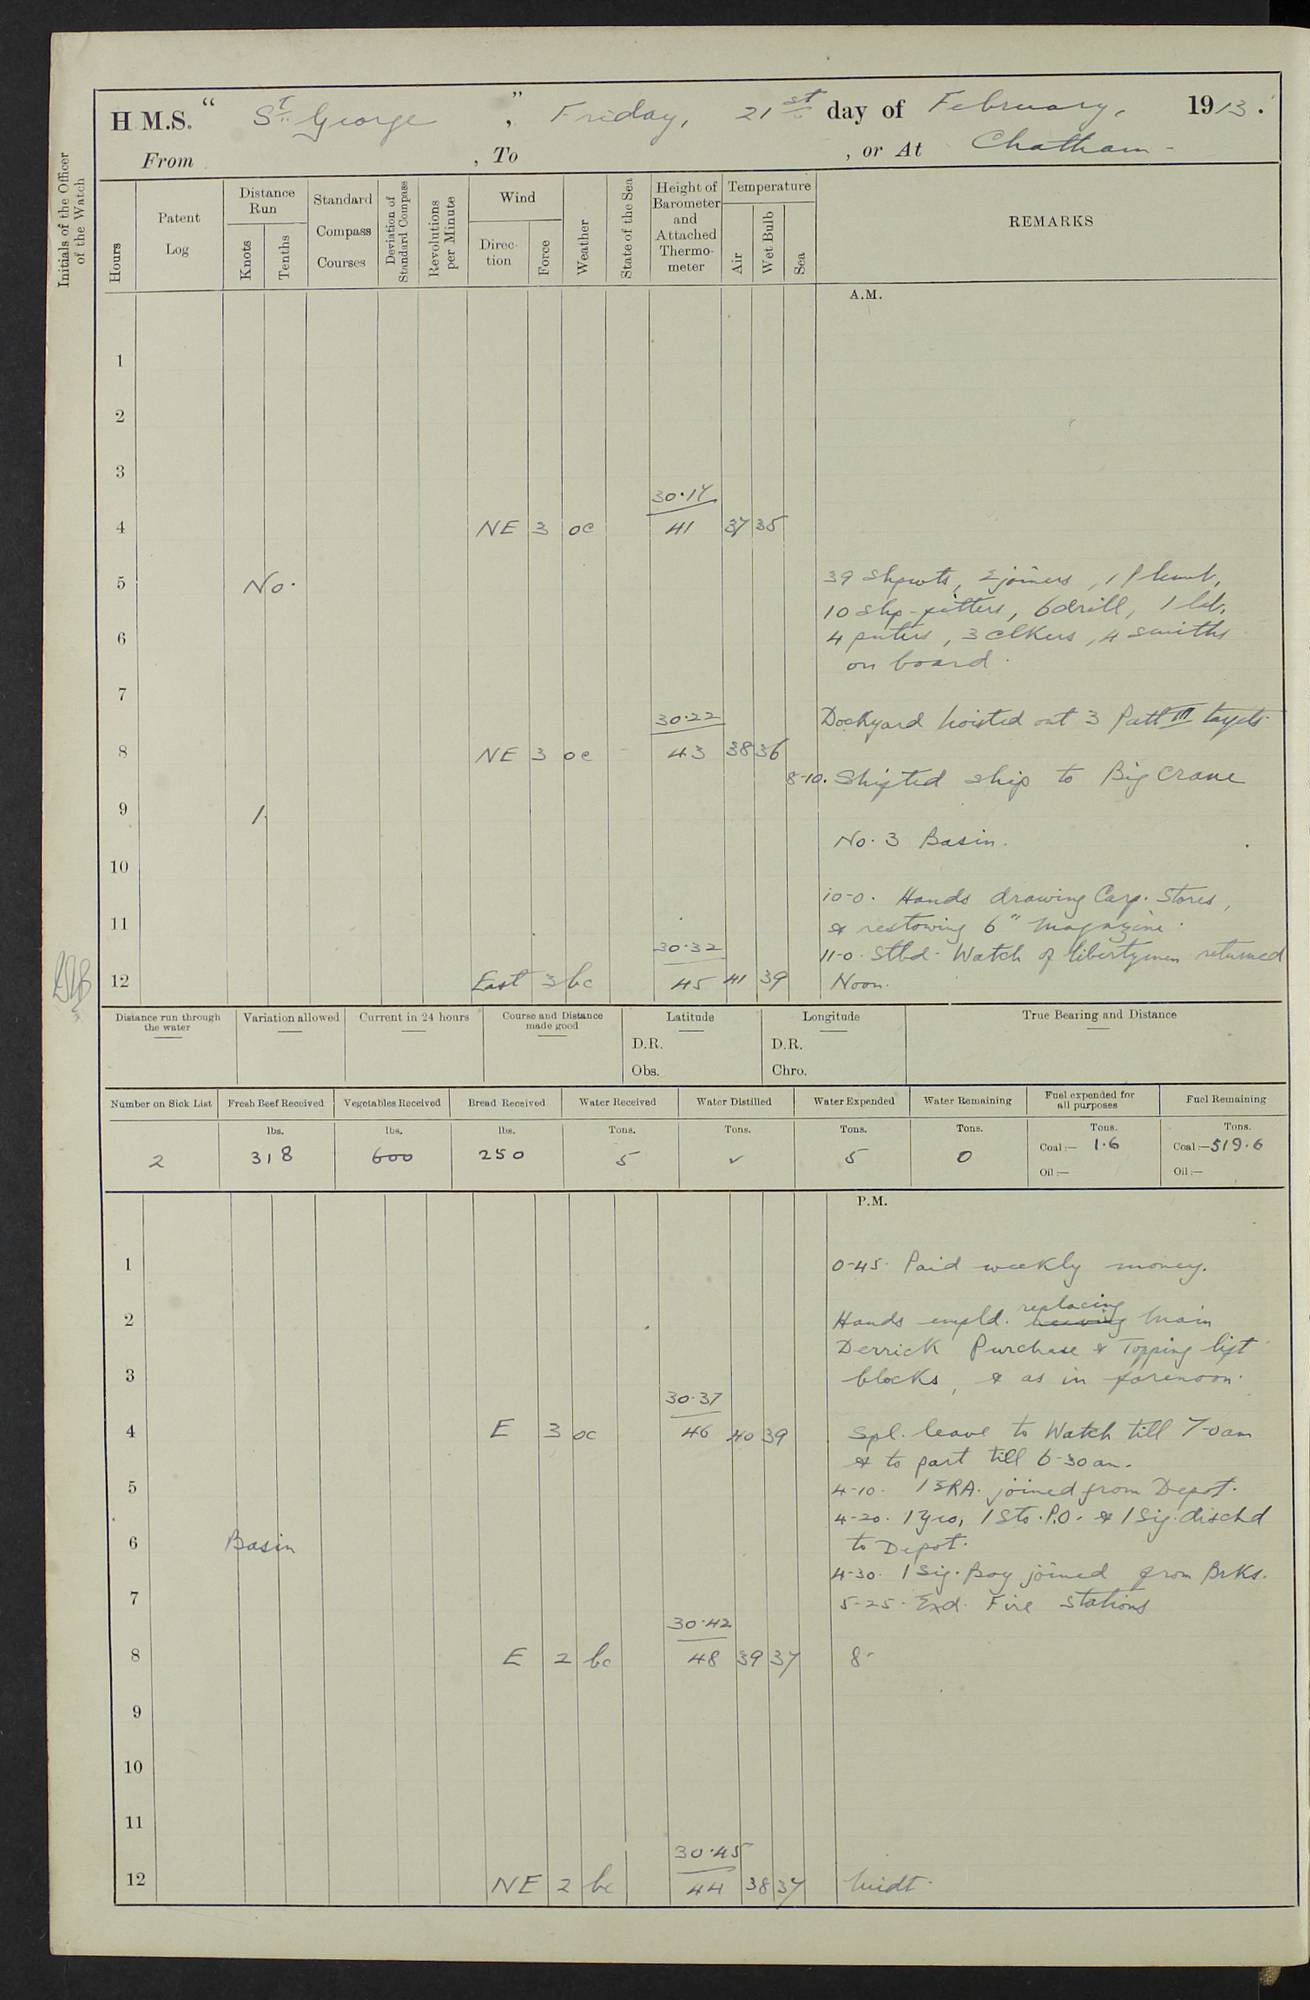 H M.S. " St. George ", Friday, 21st day of February, 1913.
From , To , or At Chatham -
Initials of the Officer of the Watch
Hours
Patent Log
Distance Run
Knots
Tenths
Standard Compass Courses
Deviation of Standard Compass
Revolutions per Minute
Wind
Direction
Force
Weather
State of the Sea
Height of Barometer and Attached Thermometer
Temperature
Air
Wet Bulb
Sea
REMARKS
A.M.
1
2
3
30.17
4 NE 3 oc 41 37 35
5 No. 39 Shpwts, 2 joiners, 1 Plumb,
10 Shp-fitters, 6 drill, 1 lab,
6 4 pnters, 3 clkers, 4 smiths
on board.
7
30.22 Dockyard hoisted out 3 Patt III targets.
8 NE 3 oc 43 38 36
8-10. Shifted ship to Big Crane
9 1.
No. 3 Basin.
10
10-0. Hands drawing Carp. Stores,
11 & restowing 6" magazine.
30.32 11-0. Stbd. Watch of libertymen returned
12 East 3 bc 45 41 39 Noon.
Distance run through the water
Variation allowed
Current in 24 hours
Course and Distance made good
Latitude
D.R.
Obs.
Longitude
D.R.
Chro.
True Bearing and Distance
Number on Sick List
Fresh Beef Received
Vegetables Received
Bread Received
Water Received
Water Distilled
Water Expended
Water Remaining
Fuel expended for all purposes
Fuel Remaining
lbs. lbs. lbs. Tons. Tons. Tons. Tons. Tons. Tons.
2 318 600 250 5 ✓ 5 0 Coal:— 1.6 Coal:—519.6
Oil:— Oil:—
P.M.
1 0-45. Paid weekly money.
replacing
2 Hands empld. main
Derrick Purchase & Topping lift
3 blocks, & as in forenoon.
30.37
4 E 3 oc 46 40 39 Spl. leave to Watch till 7-0am
& to part till 6-30am.
5 4-10. 1 ERA. joined from Depot.
4-20. 1 Yeo, 1 Sto. P.O. & 1 Sig. dischd
6 Basin to Depot.
4-30. 1 Sig. Boy joined from Brks.
7 5-25. Exd. Fire Stations
30.42
8 E 2 bc 48 39 37 8-
9
10
11
30.45
12 NE 2 bc 44 38 37 Midt.